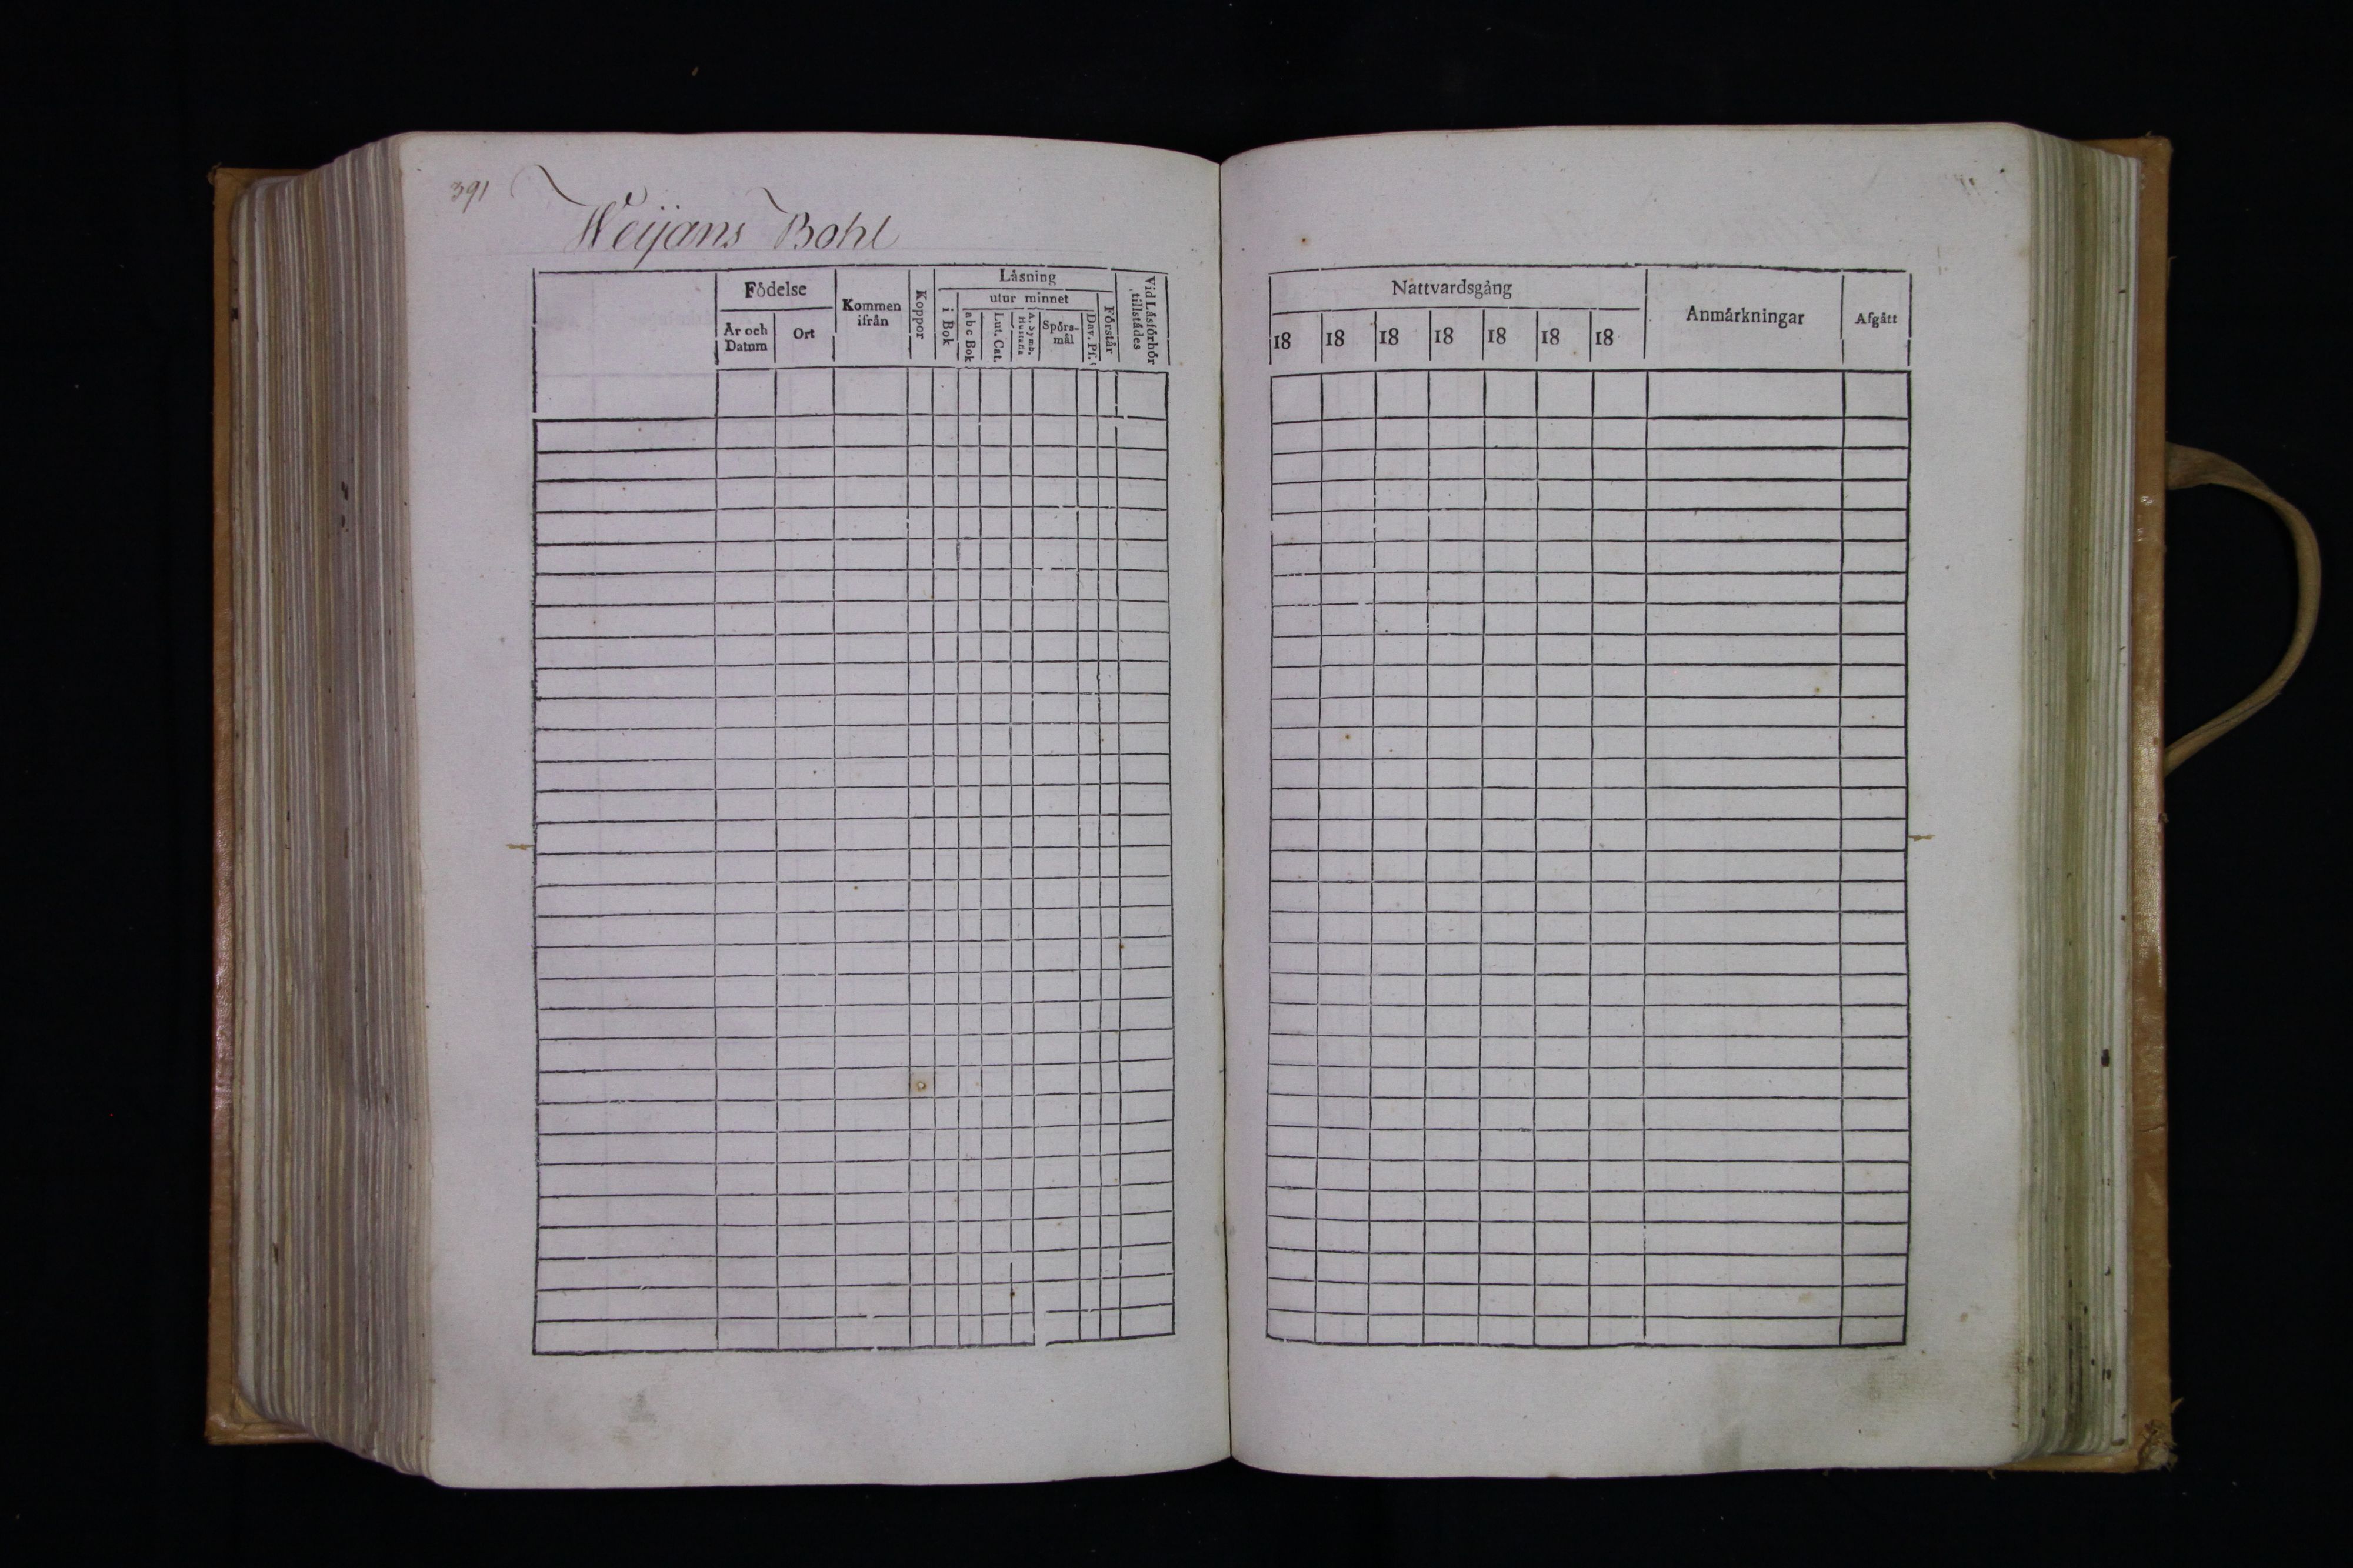 391
Weijans Bohl
Födelse
År och Datum
Ort
Kommen ifrån
Koppor
Läsning
i Bok
utur minnet
abc Bok
Lut. Cat.
A. Symb.
Spörs-
mål
Dav. Ps.
Förstår
Vid Läsförhör
tillstädes
Nattvardsgång
18 18 18 18 18 18 18
Anmärkningar
Afgått